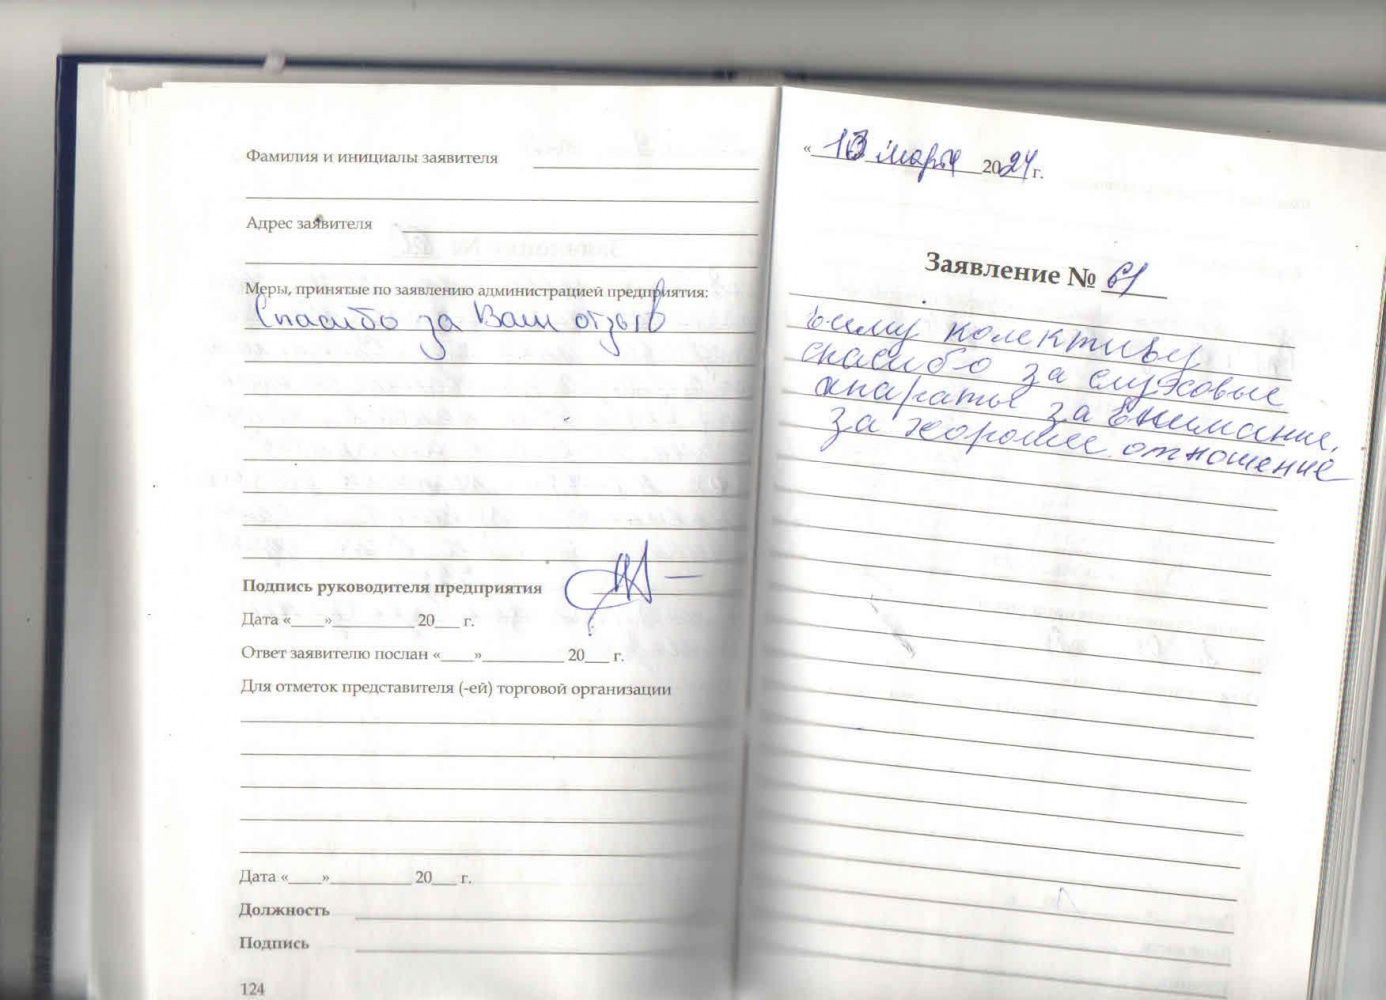 Фамилия и инициалы заявителя
Адрес заявителя
Меры, принятые по заявлению администрацией предприятия:
Спасибо за Ваш отзыв
Подпись руководителя предприятия
Дата «____»__________ 20___ г.
Ответ заявителю послан «____»__________ 20___ г.
Для отметок представителя (-ей) торговой организации
Дата «____»__________ 20___ г.
Должность
Подпись
124
« 13 марта 2024 г.
Заявление № 61
всему колективу
спасибо за слуховые
апараты за внимание,
за хорошее отношение